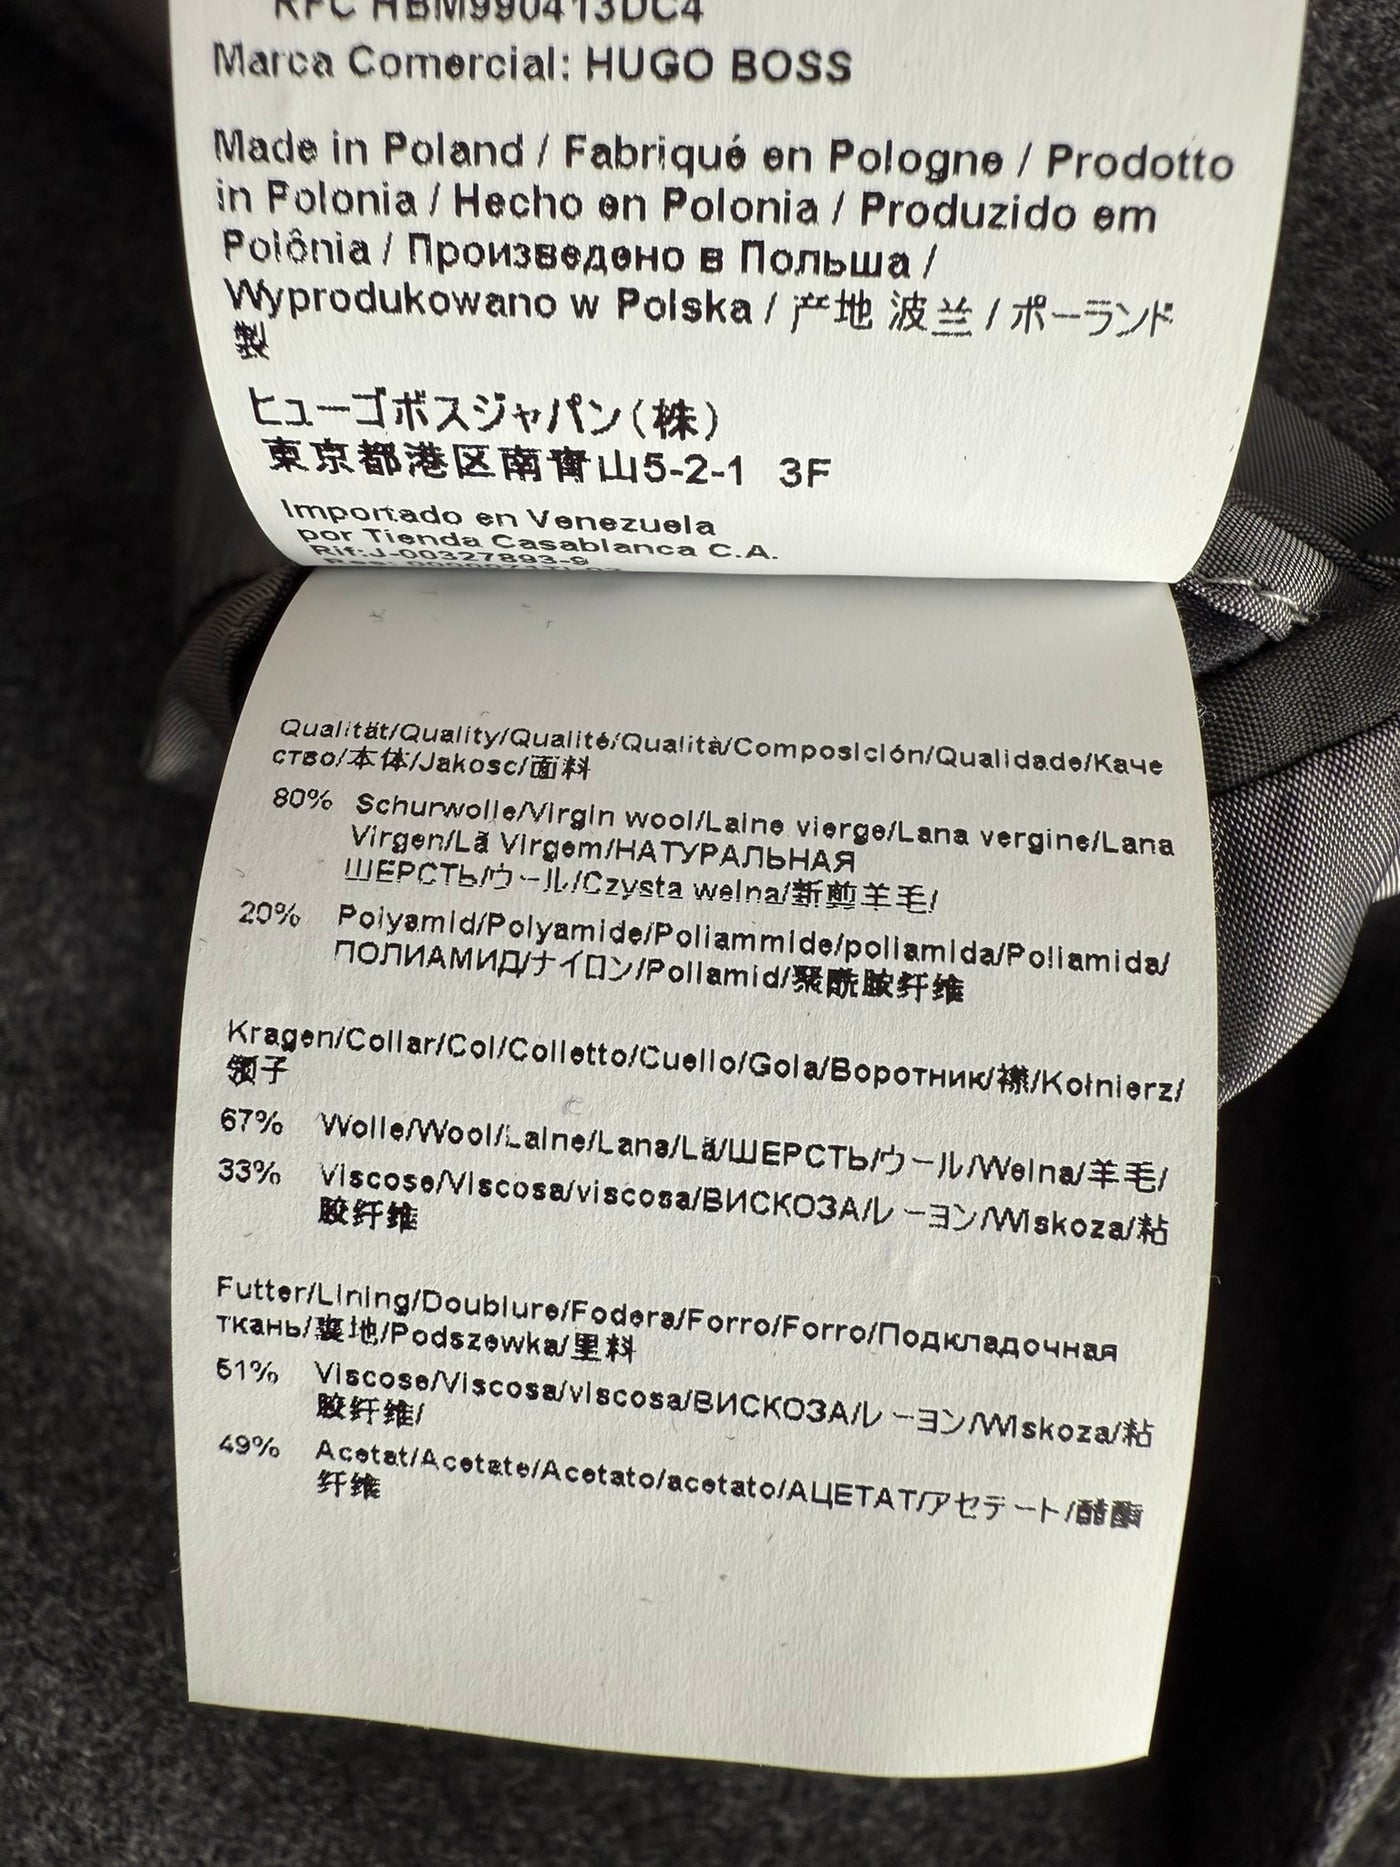 RFC HBM990413DC4
Marca Comercial: HUGO BOSS
Made in Poland / Fabriqué en Pologne / Prodotto
in Polonia / Hecho en Polonia / Produzido em
Polônia / Произведено в Польша /
Wyprodukowano w Polska / 产地 波兰 / ポーランド
製
ヒューゴボスジャパン(株)
東京都港区南青山5-2-1 3F
Importado en Venezuela
por Tienda Casablanca C.A.
Rif:J-00327893-9
Qualität/Quality/Qualité/Qualità/Composición/Qualidade/Каче
ство/本体/Jakosc/面料
80% Schurwolle/Virgin wool/Laine vierge/Lana vergine/Lana
Virgen/Lã Virgem/НАТУРАЛЬНАЯ
ШЕРСТЬ/ウール/Czysta welna/新剪羊毛/
20% Polyamid/Polyamide/Poliammide/poliamida/Poliamida/
ПОЛИАМИД/ナイロン/Poliamid/聚酰胺纤维
Kragen/Collar/Col/Colletto/Cuello/Gola/Воротник/襟/Kołnierz/
领子
67% Wolle/Wool/Laine/Lana/Lã/ШЕРСТЬ/ウール/Welna/羊毛/
33% Viscose/Viscosa/viscosa/ВИСКОЗА/レーヨン/Wiskoza/粘
胶纤维
Futter/Lining/Doublure/Fodera/Forro/Forro/Подкладочная
ткань/裏地/Podszewka/里料
51% Viscose/Viscosa/viscosa/ВИСКОЗА/レーヨン/Wiskoza/粘
胶纤维/
49% Acetat/Acetate/Acetato/acetato/АЦЕТАТ/アセテート/醋酯
纤维